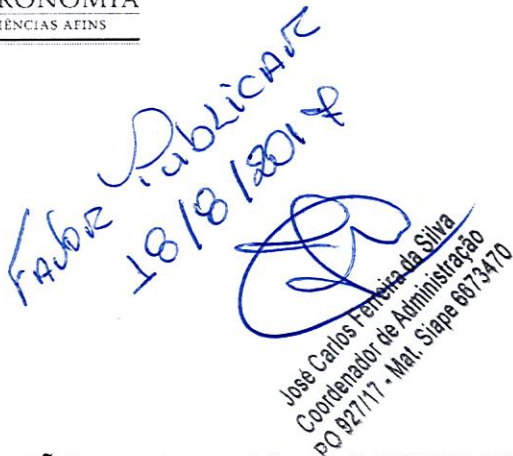 RONOMIA
IÊNCIAS AFINS
FAVOR PUBLICAR
18/8/2017
José Carlos Ferreira da Silva
Coordenador de Administração
PO 927/17 - Mat. Siape 6673470